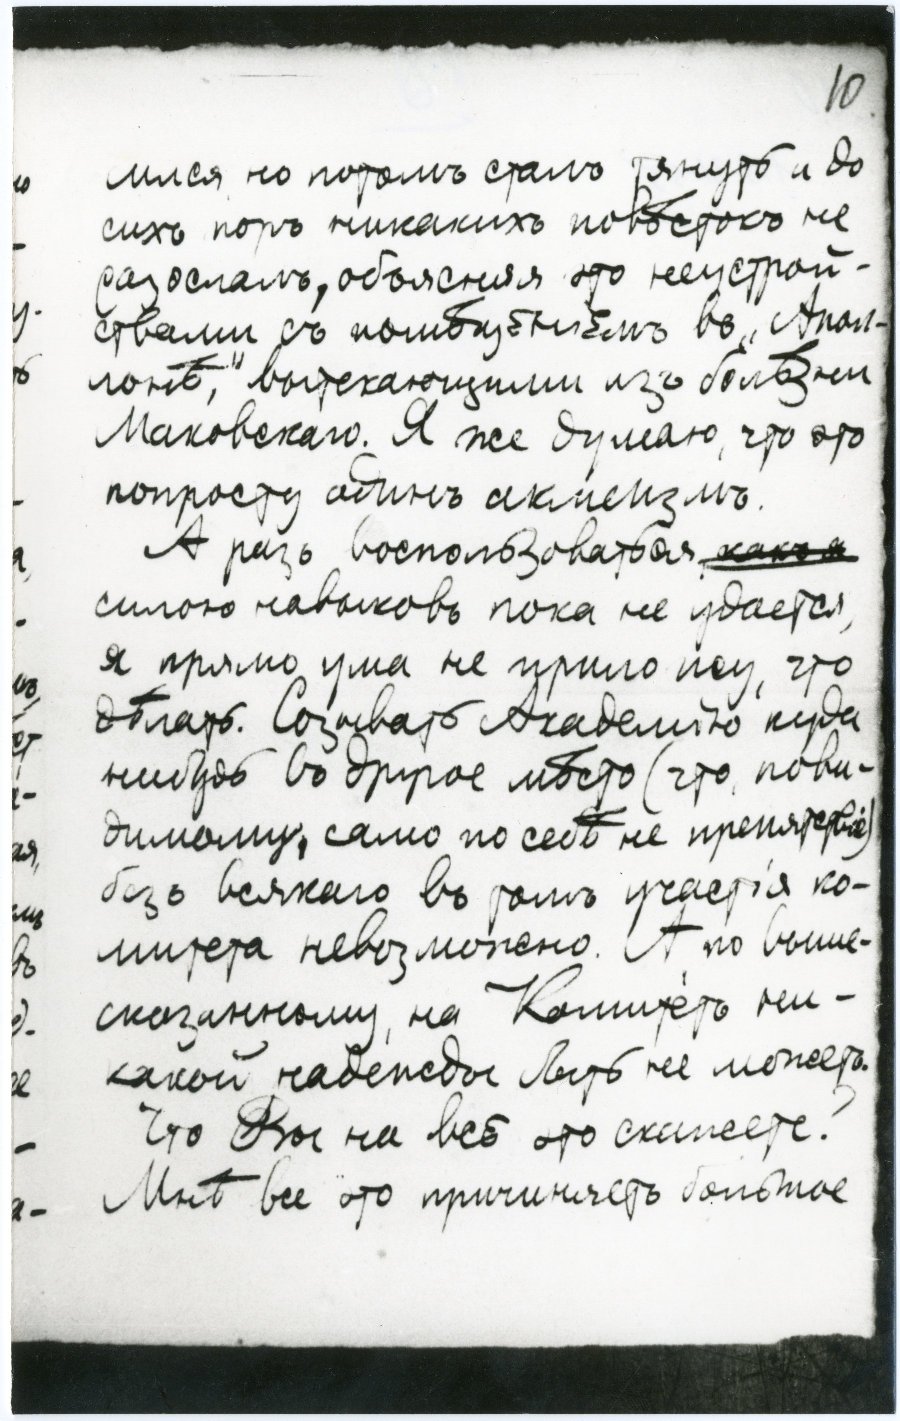 10
мился, но потомъ сталъ тянуть и до
сихъ поръ никакихъ повѣстокъ не
разослалъ, объясняя это неустрой-
ствами съ помѣщенiемъ въ „Апол-
лонѣ,“ вытекающими изъ болѣзни
Маковскаго. Я же думаю, что это
попросту одинъ акмеизмъ.
А разъ воспользоваться
силою навыковъ пока не удается,
я прямо ума не приложу, что
дѣлать. Созывать Академiю куда
нибудь въ другое мѣсто (что, пови-
димому, само по себѣ не препятствiе)
безъ всякаго въ томъ участiя ко-
митета невозможно. А по выше-
сказанному, на Комитетъ ни-
какой надежды быть не можетъ.
Что Вы на всё это скажете?
Мнѣ все это причиняетъ большое